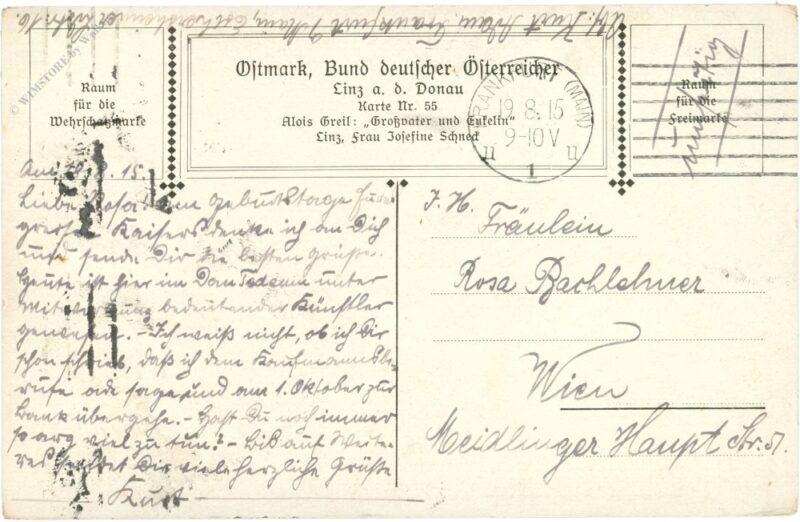 Abs: Kurt Frankfurt a/Main,
© WIMSTORE by W
Raum
für die
Wehrschatzmarke
Ostmark, Bund deutscher Österreicher
Linz a. d. Donau
Karte Nr. 55
Alois Greil: „Großvater und Enkelin“
Linz, Frau Josefine Schneck
FRANKFURT (MAIN)
19.8.15
9-10V
1
u u
Raum
für die
Freimarke
ungültig
Am 18. 15.
Liebe Rosa! Am Geburtstage Eures
greisen Kaisers denke ich an Dich
und sende Dir die besten Grüße.
Heute ist hier im Dom Tedeum unter
Mitwirkung bedeutender Künstler
gewesen. - Ich weiß nicht, ob ich Dir
schon schrieb, daß ich dem Kaufmannsbe-
rufe ade sage und am 1. Oktober zur
Bank übergehe. - Hast Du noch immer
so arg viel zu tun? - Bis auf Weite-
res sendet Dir viele herzliche Grüße
Kurt
I. H.
Fräulein
Rosa Bachlehner
Wien
Meidlinger Haupt Str. 51.